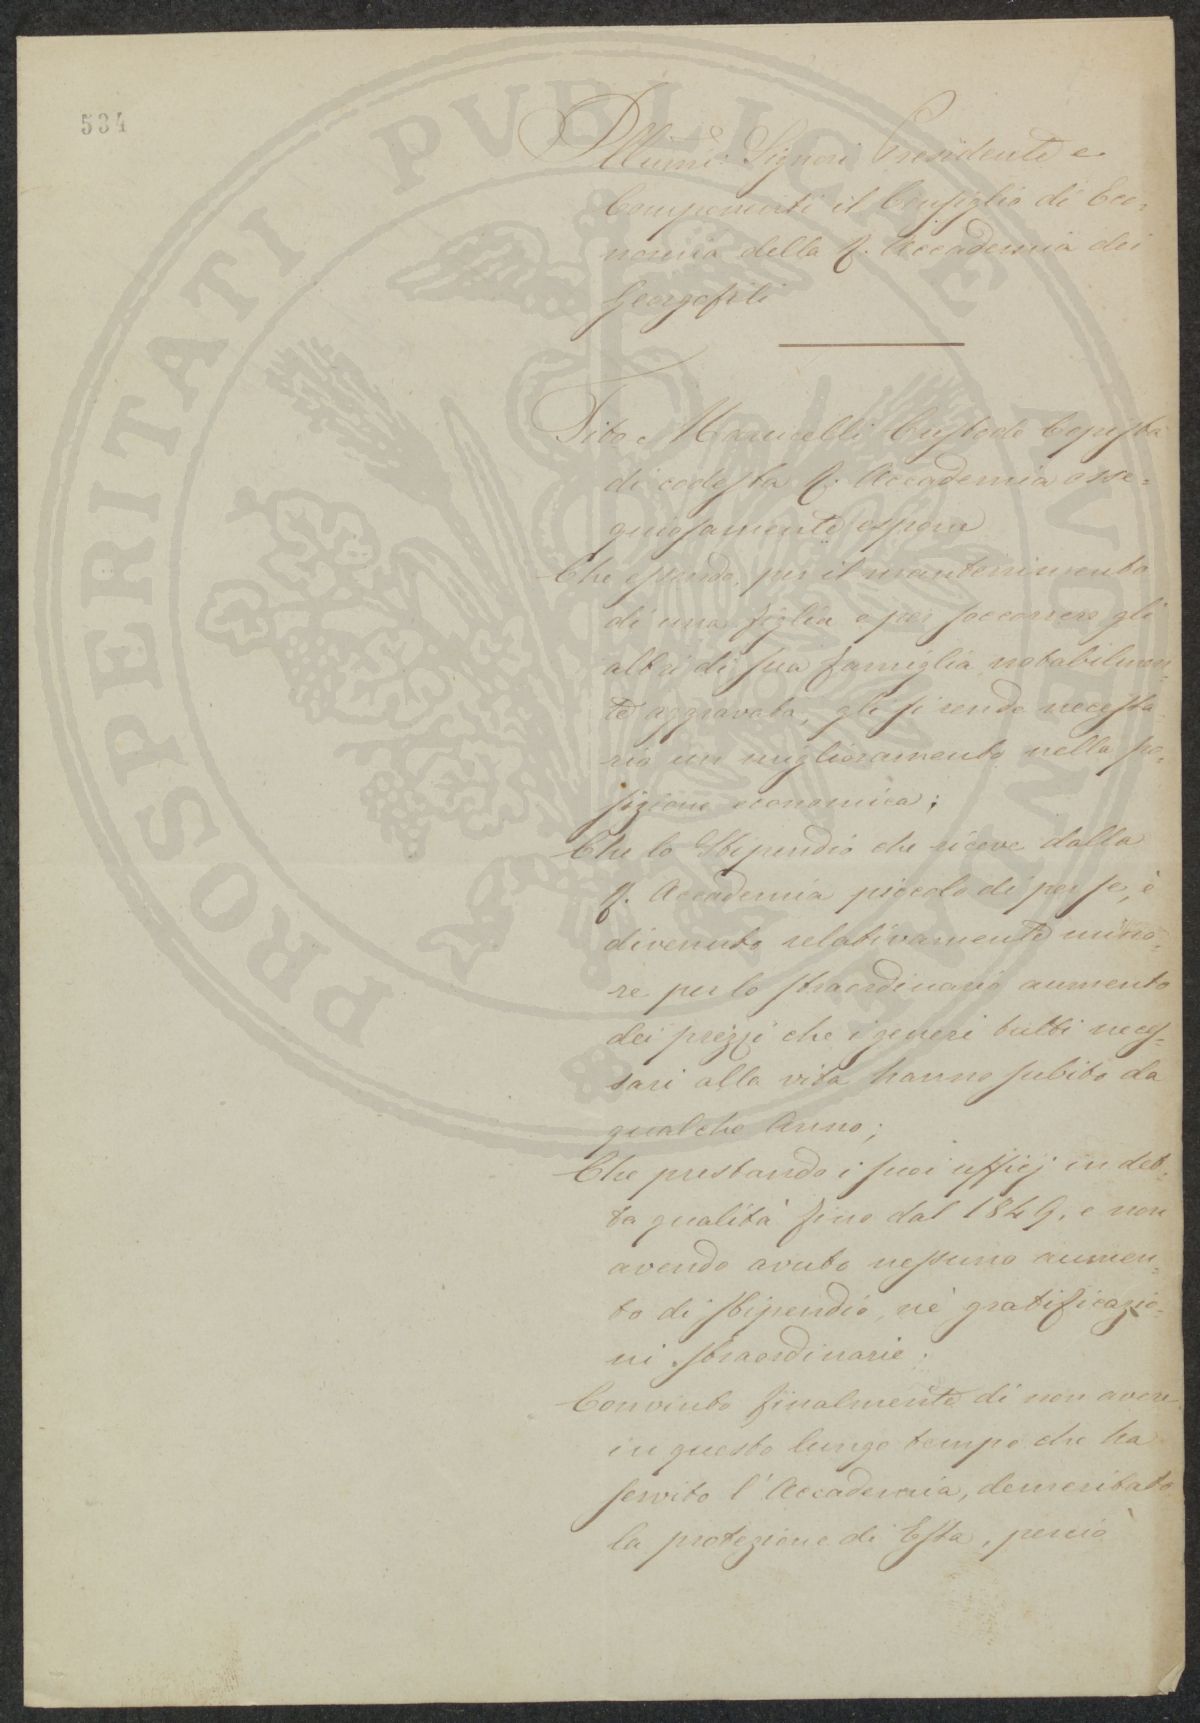 534
Illumi: Signori Presidente e
Componenti il Consiglio di Eco-
nomia della R. Accademia dei
Georgofili
Tito Marucelli Custode Copista
di codesta R. Accademia osse-
quiosamente espone
Che essendo per il mantenimento
di una figlia e per soccorrere gli
altri di sua famiglia notabilmen-
te aggravato, gli si rende necessa
rio un miglioramento nella po-
sizione economica;
Che lo Stipendio che riceve dalla
R. Accademia piccolo di per se, è
divenuto relativamente mino-
re per lo straordinario aumento
dei prezzi che i generi tutti neces-
sari alla vita hanno subito da
qualche Anno;
Che prestando i suoi ufficj in det-
ta qualità fino dal 1849, e non
avendo avuto nessuno aumen-
to di stipendio, nè gratificazio-
ni straordinarie;
Convinto finalmente di non avere
in questo lungo tempo che ha
servito l'Accademia, demeritato
la protezione di Essa, perciò
PROSPERITATI PVBLICAE AVGENDAE